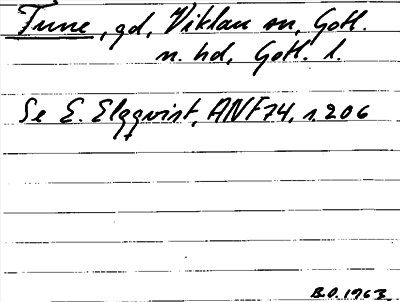 Tune, gd, Viklau sn, Gotl.
n. hd, Gotl. l.
Se E. Elgqvist, ANF 74, s. 206
B.O. 1963.